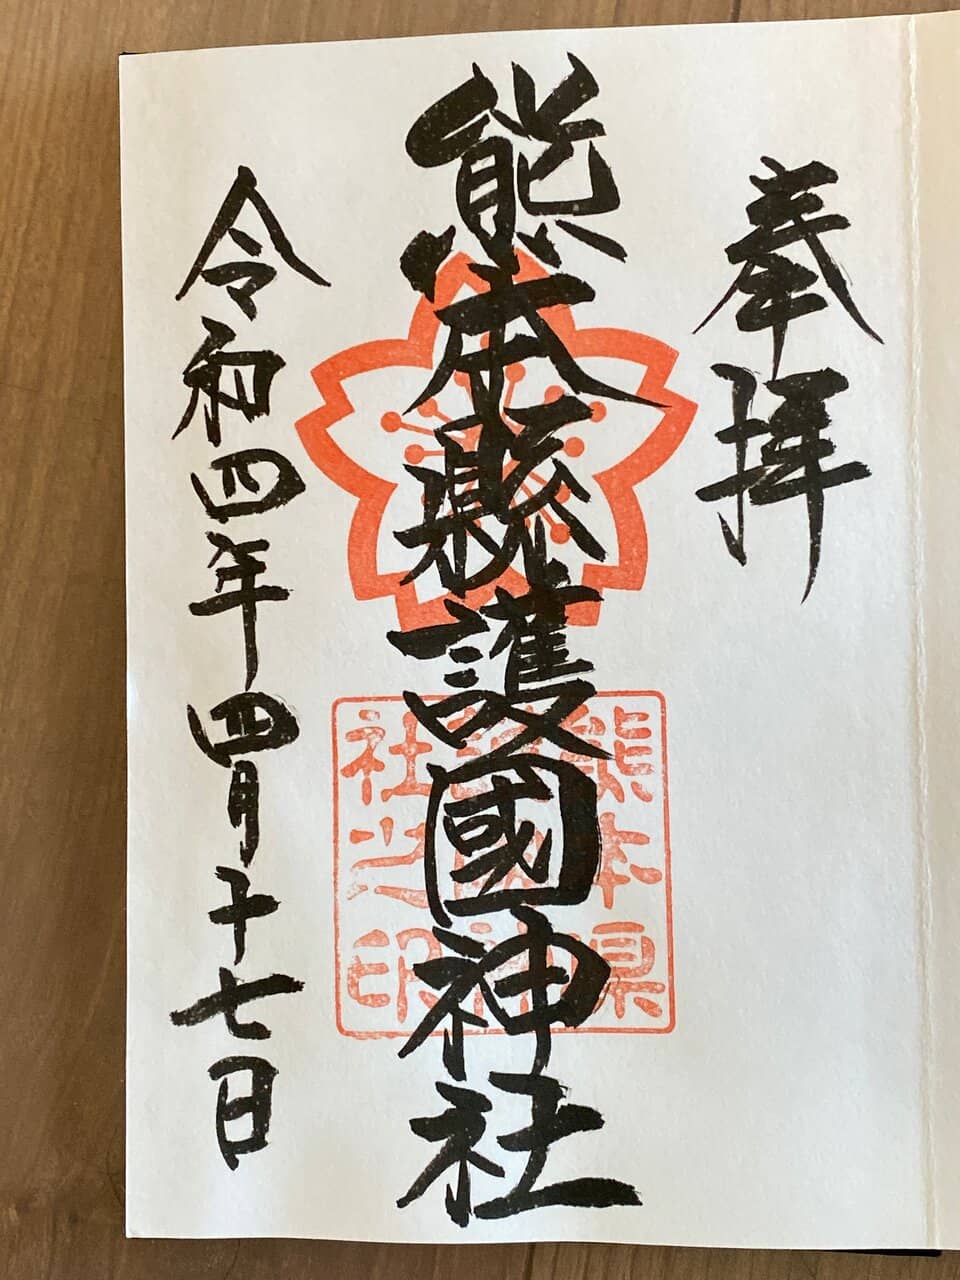 奉拝
熊本縣護國神社
熊本県
護国神
社之印
令和四年四月十七日